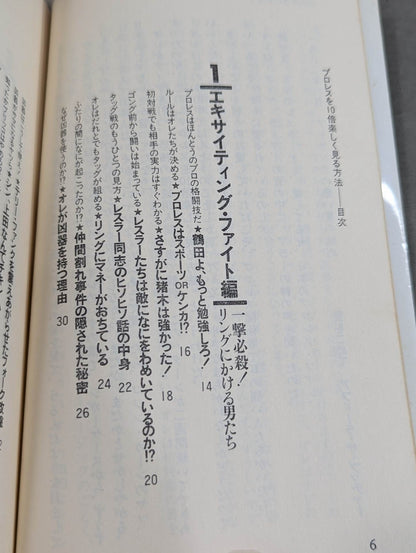 プロレスを10倍楽しく見る方法——目次
1 エキサイティング・ファイト編 一撃必殺！リングにかける男たち
プロレスはほんとうのプロの格闘技だ★鶴田よ、もっと勉強しろ！ 14
ルールはオレたちが決める★プロレスはスポーツORケンカ!? 16
初対戦でも相手の実力はすぐわかる★さすがに猪木は強かった！ 18
ゴング前から闘いは始まっている★レスラーたちは敵になにをわめいているのか!? 20
タッグ戦のもうひとつの見方★レスラー同志のヒソヒソ話の中身 22
オレはだれとでもタッグが組める★リングにマネーがおちている 24
ふたりの間になにが起こったのか!?★仲間割れ事件の隠された秘密 26
なぜ凶器を使うのか!?★オレが凶器を持つ理由 30
6